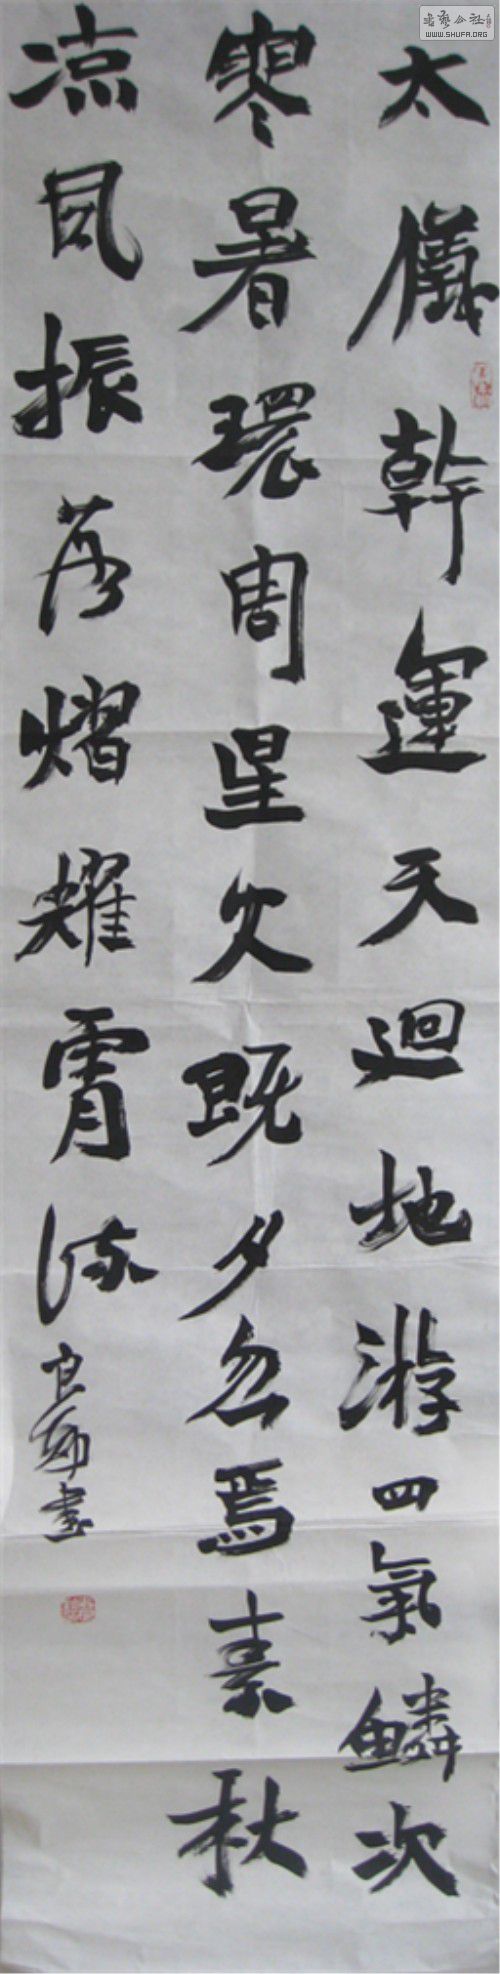 太儀幹運天迴地游四氣鱗次
寒暑環周星火既夕忽焉素秋
凉風振落熠耀霄流
良 書
書藝公社
WWW.SHUFA.ORG